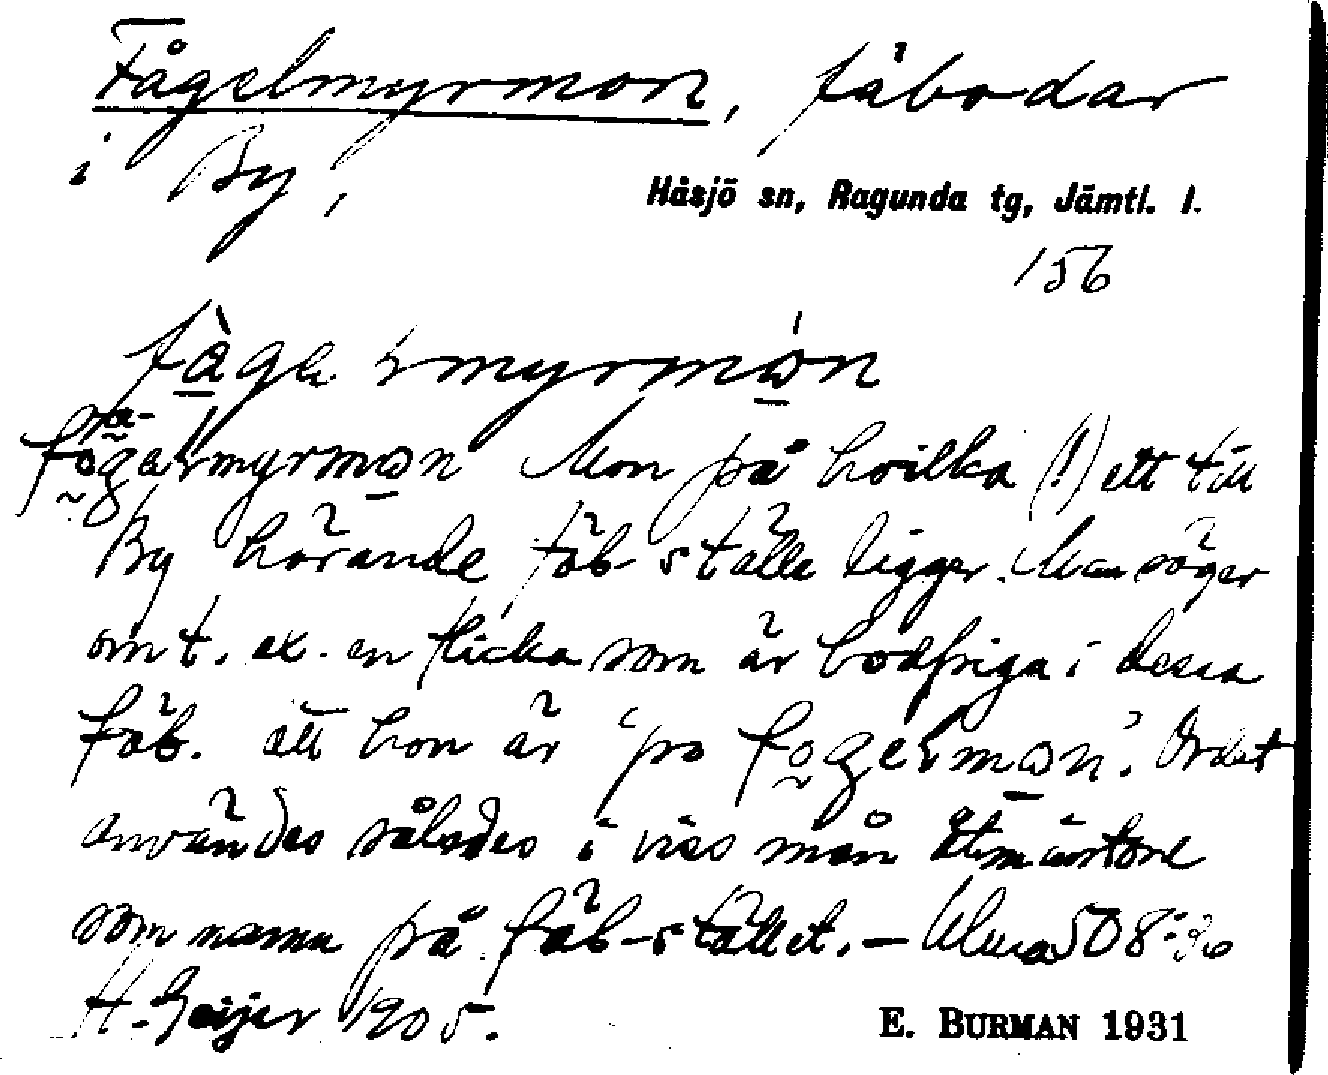 Fågelmyrmon, fäbodar
i By,
Håsjö sn, Ragunda tg, Jämtl. l.
156
fågelmyrmon Mon på hvilka (!) ett till
By hörande fäb ställe ligger. Man säger
om t. ex. en flicka som är bodpiga i dessa
fäb. att hon är 'po Ordet
användes således i viss mån åtminstone
som namn på fäb-stället. – Ulma 508:36
H. Geijer 1905.
E. BURMAN 1931